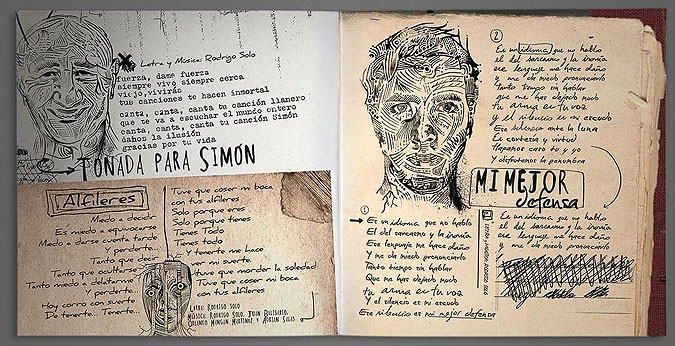 Letra y Música: Rodrigo Solo
fuerza, dame fuerza
siempre vivo siempre cerca
viejo, vivirás
tus canciones te hacen inmortal
canta, canta, canta tu canción llanero
que te va a escuchar el mundo entero
canta, canta, canta tu canción Simón
dahos la ilusión
gracias por tu vida
TONADA PARA SIMÓN
Alfileres
Miedo a decidir
Es miedo a equivocarse
Miedo a darse cuenta tarde
Y perderte...
Tanto que decir
Tanto que ocultarse
Tanto miedo a delatarme
Y perderte...
Hoy corro con suerte
De tenerte... Tenerte...
Tuve que coser mi boca
con tus alfileres
Solo porque eres
Solo porque tienes
Tienes Todo
Tienes todo
Y tenerte me hace
ver mi suerte
tuve que morder la soledad
Tuve que coser mi boca
con tus alfileres
Letra: Rodrigo Solo
Música: Rodrigo Solo, Juan
Orlando Martinez y Adrian Salas
2
Es un idioma que no hablo
el del sarcasmo y la ironía
ese lenguaje me hace daño
y me da miedo pronunciarlo
Tanto tiempo sin hablar
que me has dejado mudo
tu arma es tu voz
y el silencio es mi escudo
Ese silencio ante la luna
Es cortesía y virtud
Hagamos caso tú y yo
Y disfrutemos la penumbra
MI MEJOR
defensa
1
Es un idioma que no hablo
El del sarcasmo y la ironía
Ese lenguaje me hace daño
Y me da miedo pronunciarlo
Tanto tiempo sin hablar
Que me has dejado mudo
tu arma es tu voz
Y el silencio es mi escudo
Ese silencio es mi mejor defensa
Letra y Música: Rodrigo Solo
Es un idioma que no hablo
el del sarcasmo y la ironía
ese lenguaje me hace daño
y me da miedo pronunciarlo